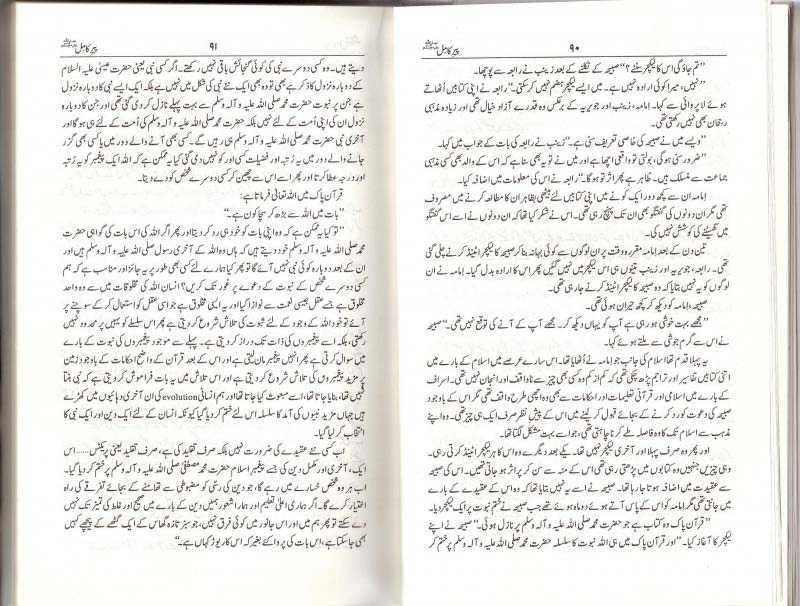 ۹۰
پیر کاملؐ
"تم جاؤ گی اس کا لیکچر سننے؟" صبیحہ کے نکلنے کے بعد زینب نے رابعہ سے پوچھا۔
"نہیں، میرا کوئی ارادہ نہیں ہے۔ میں ایسے لیکچرز ہضم نہیں کر سکتی۔" رابعہ نے اپنی کتابیں اٹھاتے
ہوئے لاپروائی سے کہا۔ امامہ، زینب اور جویریہ کے برعکس وہ قدرے آزاد خیال تھی اور زیادہ مذہبی
رجحان بھی نہیں رکھتی تھی۔
"ویسے میں نے صبیحہ کی خاصی تعریف سنی ہے۔" زینب نے رابعہ کی بات کے جواب میں کہا۔
"ضرور سنی ہو گی، بولتی تو واقعی اچھا ہے اور میں نے تو یہ بھی سنا ہے کہ اس کے والد بھی کسی مذہبی
جماعت سے منسلک ہیں۔ ظاہر ہے پھر اثر تو ہو گا۔" رابعہ نے اس کی معلومات میں اضافہ کیا۔
امامہ ان سے کچھ دور ایک کونے میں اپنی کتابیں لئے بیٹھی بظاہر ان کا مطالعہ کرنے میں مصروف
تھی مگر ان دونوں کی گفتگو بھی ان تک پہنچ رہی تھی۔ اس نے شکر کیا تھا کہ ان دونوں نے اسے اس گفتگو
میں گھسیٹنے کی کوشش نہیں کی۔
تین دن کے بعد امامہ مقررہ وقت پر ان لوگوں سے کوئی بہانہ بنا کر صبیحہ کا لیکچر اٹینڈ کرنے چلی گئی
تھی۔ رابعہ، جویریہ اور زینب تینوں ہی اس لیکچر میں نہیں گئیں پھر اس کا ارادہ بدل گیا۔ امامہ نے ان
لوگوں کو یہ نہیں بتایا کہ وہ صبیحہ کا لیکچر اٹینڈ کرنے جا رہی تھی۔
صبیحہ، امامہ کو دیکھ کر کچھ حیران ہوئی تھی۔
"مجھے بہت خوشی ہو رہی ہے آپ کو یہاں دیکھ کر۔ مجھے آپ کے آنے کی توقع نہیں تھی۔" صبیحہ
نے اس سے گرم جوشی سے ملتے ہوئے کہا۔
یہ پہلا قدم تھا اسلام کی جانب جو امامہ نے اٹھایا تھا۔ اس سارے عرصے میں اسلام کے بارے میں
اتنی کتابیں تفاسیر اور تراجم پڑھ چکی تھی کہ کم از کم وہ کسی بھی چیز سے ناواقف اور انجان نہیں تھی۔ اسراف
کے بارے میں اسلامی اور قرآنی تعلیمات اور احکامات سے بھی وہ اچھی طرح واقف تھی مگر اس کے باوجود
صبیحہ کی دعوت کو رد کرنے کے بجائے قبول کر لینے میں اس کے پیش نظر صرف ایک ہی چیز تھی۔ وہ اپنے
مذہب سے اسلام تک کا وہ فاصلہ طے کرنا چاہتی تھی، جو اسے بہت مشکل لگتا تھا۔
اور پھر وہ صرف پہلا اور آخری لیکچر نہیں تھا۔ یکے بعد دیگرے وہ اس کا ہر لیکچر اٹینڈ کرتی رہی۔
وہی چیزیں جنہیں وہ کتابوں میں پڑھتی رہی تھی اس کے منہ سے سن کر پراثر ہو جاتی تھیں۔ اس کی صبیحہ
سے عقیدت میں اضافہ ہوتا جا رہا تھا۔ صبیحہ نے اسے یہ نہیں بتایا تھا کہ وہ اس کے عقیدے کے بارے
میں جانتی تھی مگر امامہ کو اس کے پاس آتے ہوئے دو ماہ ہوئے تھے جب صبیحہ نے ختم نبوت پر ایک لیکچر دیا۔
"قرآن پاک وہ کتاب ہے جو حضرت محمد صلی اللہ علیہ و آلہ وسلم پر نازل ہوئی۔" صبیحہ نے اپنے
لیکچر کا آغاز کیا۔ "اور قرآن پاک میں ہی اللہ نبوت کا سلسلہ حضرت محمد صلی اللہ علیہ و آلہ وسلم پر ختم کر
۹۱
پیر کاملؐ
دیتے ہیں۔ وہ کسی دوسرے نبی کی کوئی گنجائش باقی نہیں رکھتے۔ اگر کسی نبی یعنی حضرت عیسیٰ علیہ السلام
کے دوبارہ نزول کا ذکر ہے بھی تو وہ بھی ایک نئے نبی کی شکل میں نہیں ہے بلکہ ایک ایسے نبی کا دوبارہ نزول
ہے جن پر نبوت حضرت محمد صلی اللہ علیہ و آلہ وسلم سے بہت پہلے نازل کر دی گئی تھی اور جن کا دوبارہ
نزول ان کی اپنی امت کے لئے نہیں بلکہ حضرت محمد صلی اللہ علیہ و آلہ وسلم کی امت کے لئے ہی ہو گا اور
آخری نبی حضرت محمد صلی اللہ علیہ و آلہ وسلم ہی رہیں گے۔ کسی بھی آنے والے دور میں یا کسی بھی گزر
جانے والے دور میں یہ رتبہ اور فضیلت کسی اور کو نہیں دی گئی کیا یہ ممکن ہے کہ اللہ ایک پیغمبر کو یہ رتبہ
اور درجہ عطا کرتا اور پھر اسے اس سے چھین کر کسی دوسرے شخص کو دے دیتا۔
قرآن پاک میں اللہ تعالیٰ فرماتا ہے:
"بات میں اللہ سے بڑھ کر سچا کون ہے۔"
"تو کیا یہ ممکن ہے کہ وہ اپنی بات کو خود ہی رد کر دیتا اور پھر اگر اللہ کی اس بات کی گواہی حضرت
محمد صلی اللہ علیہ و آلہ وسلم خود دیتے ہیں کہ ہاں وہ اللہ کے آخری رسول صلی اللہ علیہ و آلہ وسلم ہیں اور
ان کے بعد دوبارہ کوئی نبی نہیں آئے گا تو پھر کیا ہمارے لئے کسی بھی طور پر یہ جائز اور مناسب ہے کہ ہم
کسی دوسرے شخص کے نبوت کے دعوے پر غور تک کریں؟ انسان اللہ کی مخلوقات میں سے وہ واحد
مخلوق ہے جسے عقل جیسی نعمت سے نوازا گیا اور یہ ایسی مخلوق ہے جو اسی عقل کو استعمال کر کے سوچنے پر
آئے تو خود اللہ کے وجود کے لئے ثبوت کی تلاش شروع کر دیتی ہے پھر اس سلسلے کو یہیں پر محدود نہیں
رکھتی، بلکہ اسے پیغمبروں کی ذات تک دراز کر دیتی ہے۔ پہلے سے موجود پیغمبروں کی نبوت کے بارے
میں سوال کرتی ہے پھر انہیں پیغمبر مان لیتی ہے اور اس کے بعد قرآن کے واضح احکامات کے باوجود زمین
پر مزید پیغمبروں کی تلاش شروع کر دیتی ہے اور اس تلاش میں یہ بات فراموش کر دیتی ہے کہ نبی بنتا
نہیں تھا، بنایا جاتا تھا، اسے مبعوث کیا جاتا تھا اور ہم انسانی evolution کی ان آخری دہائیوں میں کھڑے
ہیں جہاں مزید نبیوں کی آمد کا سلسلہ اس لئے ختم کر دیا گیا کیونکہ انسان کے لئے ایک دین اور ایک نبی کا
انتخاب کر لیا گیا۔
اب کسی نئے عقیدے کی ضرورت نہیں بلکہ صرف تقلید کی ہے، صرف تقلید یعنی پریکٹس..... اس
ایک، آخری اور مکمل دین کی جسے پیغمبر اسلام حضرت محمد مصطفیٰ صلی اللہ علیہ و آلہ وسلم پر ختم کر دیا گیا۔
اب ہر وہ شخص خسارے میں رہے گا، جو دین کی رسی کو مضبوطی سے تھامنے کے بجائے تفرقے کی راہ
اختیار کرے گا۔ اگر ہماری اعلیٰ تعلیم اور ہمارا شعور ہمیں دین کے بارے میں صحیح اور غلط کی تمیز تک نہیں
دے سکتے تو پھر ہم میں اور اس جانور میں کوئی فرق نہیں، جو سبز تازہ گھاس کے ایک گٹھے کے پیچھے کہیں
بھی جا سکتا ہے، اس بات کی پروا کئے بغیر کہ اس کا ریوڑ کہاں ہے۔"